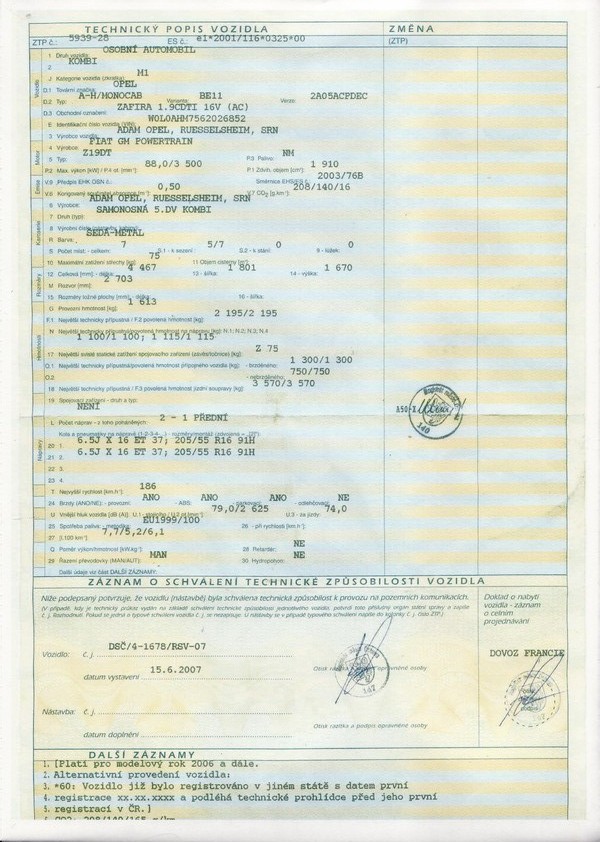 TECHNICKÝ POPIS VOZIDLA ZMĚNA
ZTP č.: 5939-28 ES č.: e1*2001/116*0325*00 (ZTP)
1 Druh vozidla: OSOBNÍ AUTOMOBIL
2 KOMBI
J Kategorie vozidla (zkratka): M1
D.1 Tovární značka: OPEL
D.2 Typ: A-H/MONOCAB Varianta: BE11 Verze: 2A05ACPDEC
D.3 Obchodní označení: ZAFIRA 1.9CDTI 16V (AC)
E Identifikační číslo vozidla (VIN): W0L0AHM7562026852
3 Výrobce vozidla: ADAM OPEL, RUESSELSHEIM, SRN
4 Výrobce: FIAT GM POWERTRAIN
5 Typ: Z19DT P.3 Palivo: NM
P.2 Max. výkon [kW] / P.4 ot. [min⁻¹]: 88,0/3 500 P.1 Zdvih. objem [cm³]: 1 910
V.9 Předpis EHK OSN č.: Směrnice EHS/ES č.: 2003/76B
V.6 0,50 V.7 CO₂ [g.km⁻¹]: 208/140/16
6 Výrobce: ADAM OPEL, RUESSELSHEIM, SRN
7 Druh (typ): SAMONOSNÁ 5.DV KOMBI
8
R Barva: ŠEDÁ-METAL
S Počet míst: - celkem: 7 S.1 - k sezení: 5/7 S.2 - k stání: 0 9 - lůžek: 0
10 Maximální zatížení střechy [kg]: 75 11 Objem cisterny [m³]:
12 Celková [mm]: - délka: 4 467 13 - šířka: 1 801 14 - výška: 1 670
M Rozvor [mm]: 2 703
15 Rozměry ložné plochy [mm]: - délka: 16 - šířka:
G Provozní hmotnost [kg]: 1 613
F.1 Největší technicky přípustná / F.2 povolená hmotnost [kg]: 2 195/2 195
N Největší technicky přípustná/povolená hmotnost na nápravu [kg]: N.1; N.2; N.3; N.4 1 100/1 100; 1 115/1 115
17 Největší svislé statické zatížení spojovacího zařízení (závěs/točnice) [kg]: Z 75
O.1 Největší technicky přípustná/povolená hmotnost přípojného vozidla [kg]: - brzděného: 1 300/1 300
O.2 - nebrzděného: 750/750
18 Největší technicky přípustná / F.3 povolená hmotnost jízdní soupravy [kg]: 3 570/3 570
19 Spojovací zařízení - druh a typ: NENÍ
L Počet náprav - z toho poháněných: 2 - 1 PŘEDNÍ
Kola a pneumatiky na nápravě (1-2-3-4...) - rozměry/montáž (zdvojená = „[2]“):
20 1. 6.5J X 16 ET 37; 205/55 R16 91H
21 2. 6.5J X 16 ET 37; 205/55 R16 91H
22 3.
23 4.
T Nejvyšší rychlost [km.h⁻¹]: 186
24 Brzdy (ANO/NE): - provozní: ANO - ABS: ANO - parkovací: ANO - odlehčovací: NE
U Vnější hluk vozidla [dB (A)]: U.1 - stojícího / U.2 ot [min⁻¹]: 79,0/2 625 U.3 - za jízdy: 74,0
25 Spotřeba paliva: - metodika: EU1999/100 26 - při rychlosti [km.h⁻¹]:
27 [l.100 km⁻¹] 7,7/5,2/6,1
Q Poměr výkon/hmotnost [kW.kg⁻¹]: 28 Retardér: NE
29 Řazení převodovky (MAN/AUT): MAN 30 Hydropohon: NE
Další údaje viz část DALŠÍ ZÁZNAMY:
A50-X
140
ZÁZNAM O SCHVÁLENÍ TECHNICKÉ ZPŮSOBILOSTI VOZIDLA
Níže podepsaný potvrzuje, že vozidlu (nástavbě) byla schválena technická způsobilost k provozu na pozemních komunikacích.
Doklad o nabytí
vozidla - záznam
o celním
projednávání
Vozidlo: č. j. DSČ/4-1678/RSV-07
datum vystavení 15.6.2007
Otisk razítka a podpis oprávněné osoby
147
DOVOZ FRANCIE
Nástavba: č. j.
datum doplnění
Otisk razítka a podpis oprávněné osoby
DALŠÍ ZÁZNAMY
1. [Platí pro modelový rok 2006 a dále.
2. Alternativní provedení vozidla:
3. *60: Vozidlo již bylo registrováno v jiném státě s datem první
4. registrace xx.xx.xxxx a podléhá technické prohlídce před jeho první
5. registrací v ČR.]
6. CO2: 208/140/165 g/km